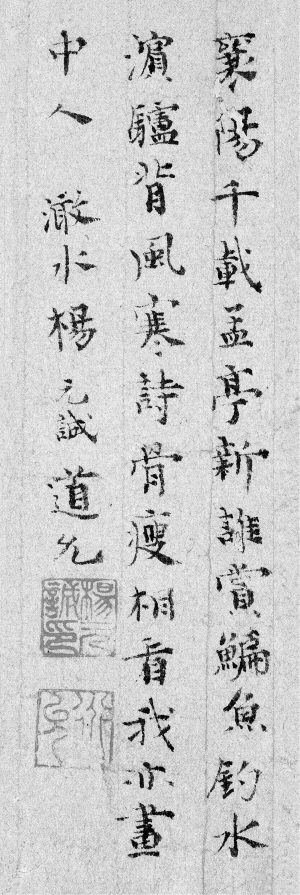 襄陽千載孟亭新誰賞鯿魚釣水
濱驢背風寒詩骨瘦相看我亦畫
中人 澉水楊元誠道允
楊元誠印